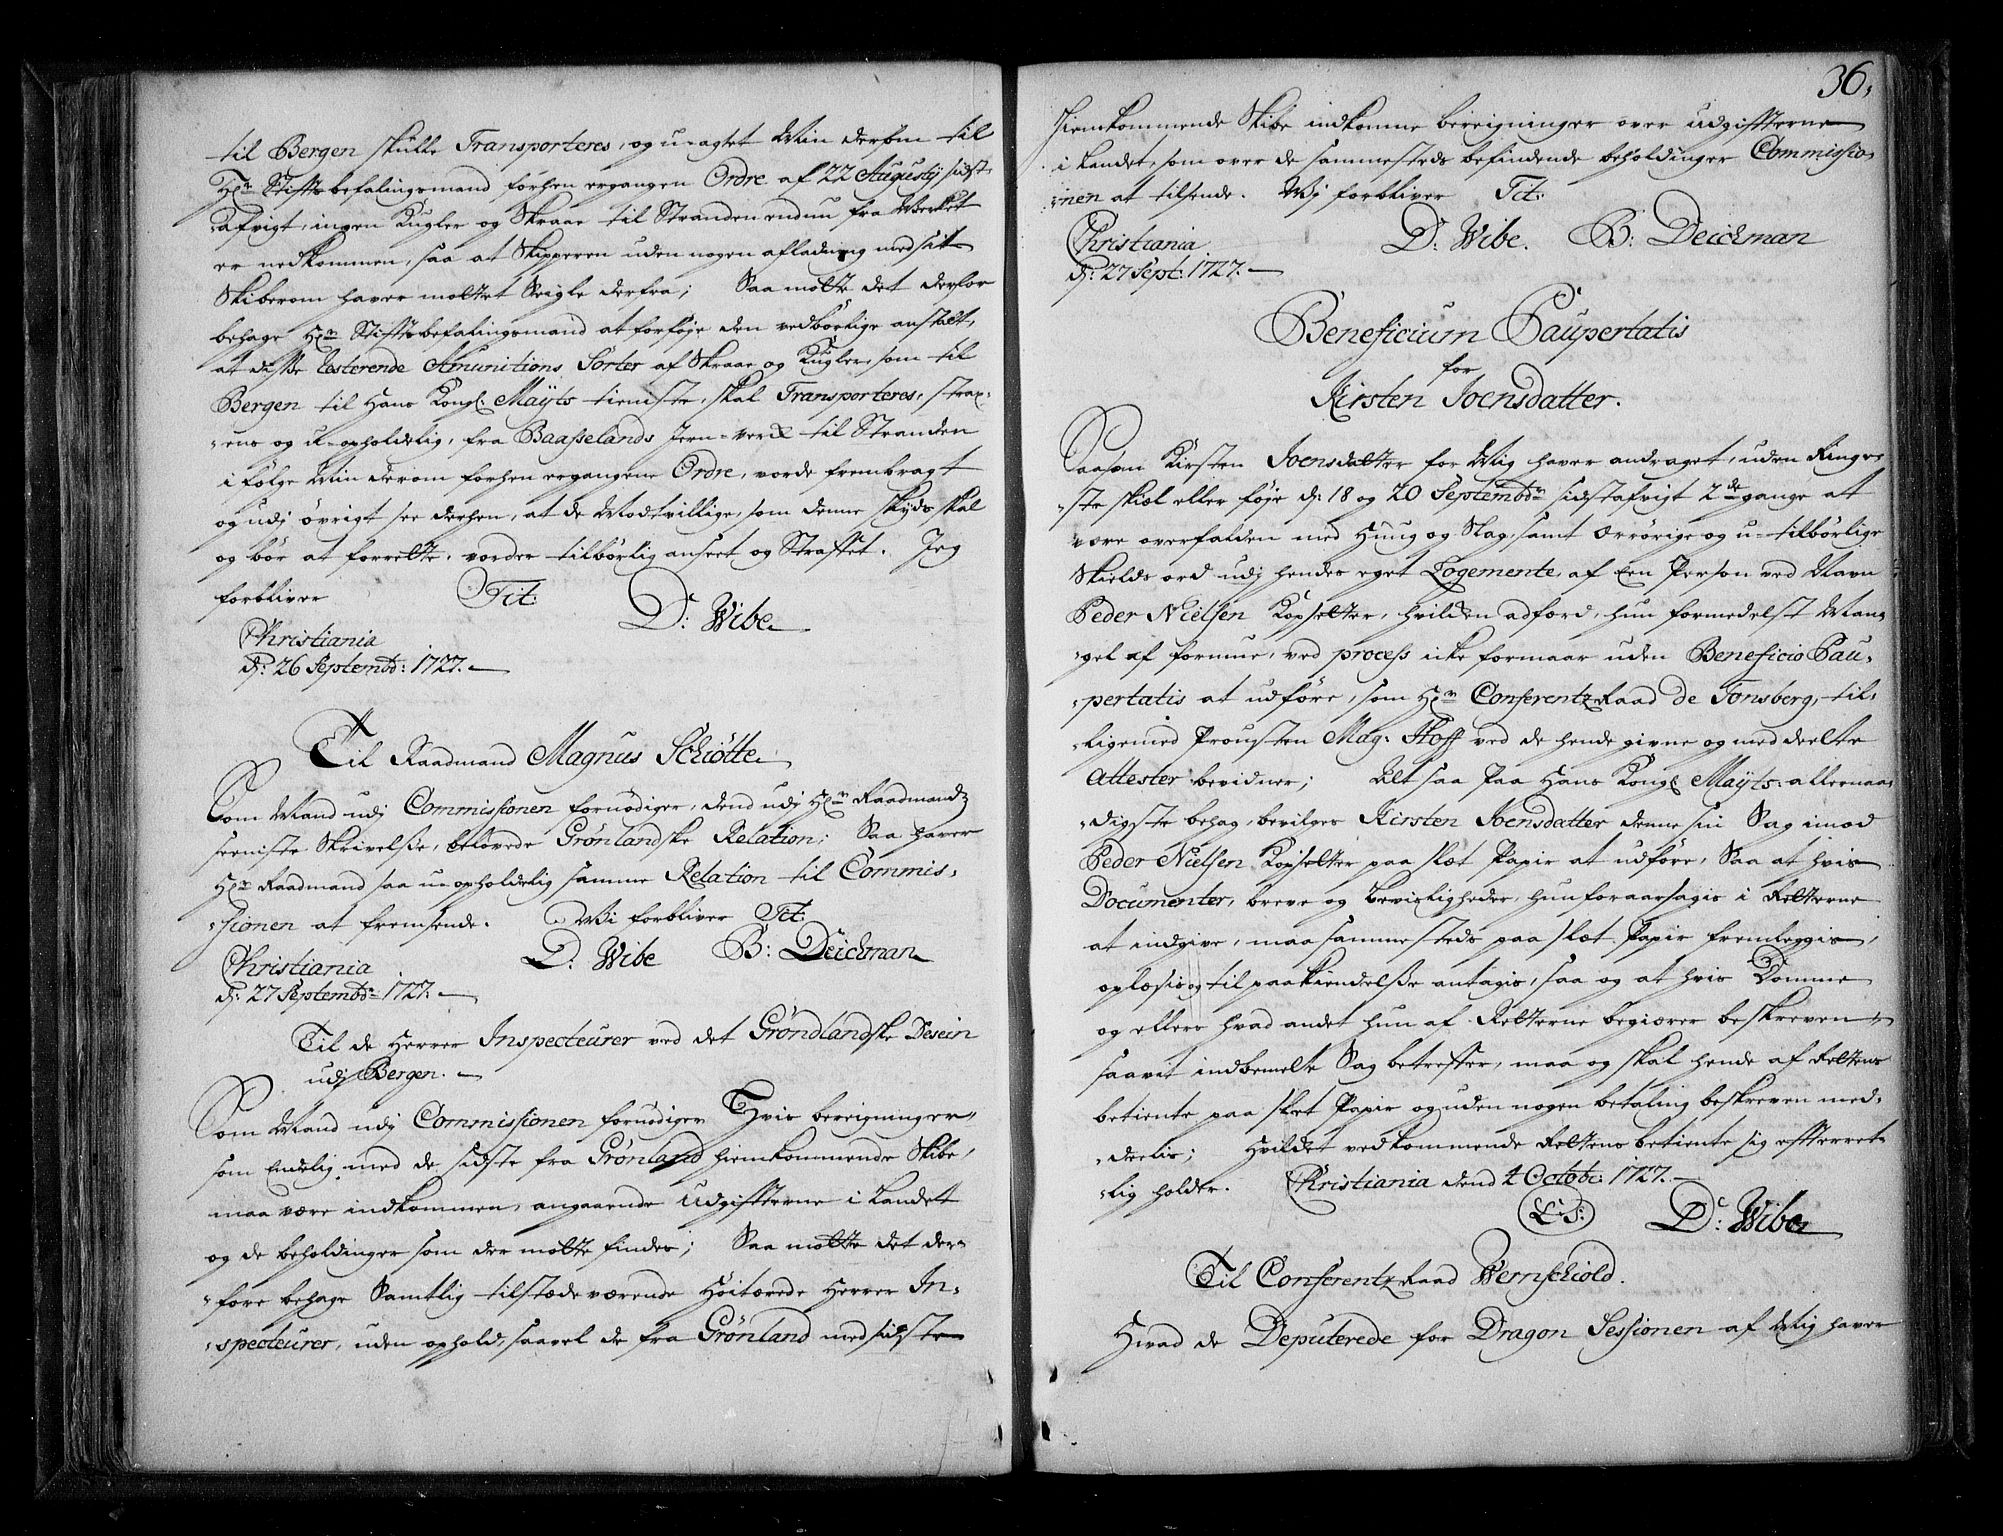 til Bergen skulle Transporteres, og u-agtet Min derom til
Hr. Stiftsbefalingsmand forhen ergangen Ordre af 22 Augustij sidst-
afvigt, ingen Kugler og Skraae til Stranden endnu fra Verket
er nedkommen, saa at Skipperen uden nogen afladning med sit
Skiberom haver mottet Seigle derfra; Saa motte det derfor
behage Hr. Stiftsbefalingsmand at forføje den vedbørlige anstalt,
at disse resterende Amunitions Sorter af Skraae og Kugler, som til
Bergen til Hans Kongl: Mayts tieniste, skal Transporteres, strax-
-ens og u-opholdelig, fra Baaselands Jern-verck til Stranden
i følge Min derom forhen ergangene Ordre, vorde frembragt
og udj øvrigt see derhen, at de Modtvillige, som denne skyds skal
og bør at forrette, vorder tilbørlig anseet og Straffet. Jeg
forbliver Tit:
D: Wibe
Christiania
d: 26 Septembr: 1727.
Til Raadmand Magnus Schiøtte.
Som Mand udj Commissionen fornødiger, dend udj Hr. Raadmands
seeniste Skrivelse, belovede Grønlandske Relation; Saa haver
Hr. Raadmand saa u-opholdelig samme Relation til Commis-
-sionen at fremsende. Wi forbliver Tit:
D: Wibe B: Deichman
Christiania
d: 27 Septembr 1727.
Til de Herrer Inspecteurer ved det Grøndlandske Desein
udj Bergen.
Som Mand udj Commissionen fornødiger Hvis bereigninger,
som Endelig med de sidste fra Grønland hiemkommende Skibe,
maa være indkommen, angaaende Udgiffterne i Landet
og de beholdinger som der motte findes; Saa motte det der-
-fore behage Samtlig tilstædeværende Høitærede Herrer In-
-specteurer, uden ophold, saavel de fra Grønland med sidste
36,
Hiemkommende Skibe indkomne bereigninger over udgiffterne
i Landet, som over de sammesteds befindende beholdinger Commissio-
-nen at tilsende. Wj forbliver Tit:
D: Wibe. B: Deichman
Christiania
d: 27 Sept: 1727.
Beneficium Paupertatis
for
Kirsten Joensdatter.
Saasom Kirsten Joensdatter for Mig haver andraget, uden Ringe-
-ste skiæl eller føje d: 18 og 20 Septembr sidstafvigt 2de gange at
være overfalden med Hung og Slag, samt ærrørige og u-tilbørlige
Skields ord udj hendes eget Logemente, af Een Person ved Navn
Peder Nielsen , hvilcken adfærd, hun formedelst Man-
-gel af formue, ved process icke formaar uden Beneficio Pau-
-pertatis at udføre, som Hr Conferentz Raad de Tonsberg, til-
-ligemed Prousten Mag: Hoff ved de hende givne og meddeelte
Attester bevidner; Alt saa Paa Hans Kongl Mayts: allernaa-
-digste behag, bevilges Kirsten Joensdatter denne sin Sag imod
Peder Nielsen paa slæt Papir at udføre, Saa at hvis
Documenter, breve og bevisligheder, hun foraarsagis i Retterne
at indgive, maa sammesteds paa slæt Papir fremleggis,
oplæsis og til paakiendelse antagis, saa og at hvis Domme
og ellers hvad andet hun af Retterne begiærer beskreven,
saavit indbemelte Sag betreffer, maa og skal hende af Rettens
betiente paa slæt Papir og uden nogen betaling beskreven med-
-deelis; Hvildet vedkommende Rettens betiente sig effterret-
-lig holder. Christiania dend 4 Octobr: 1727.
L: S: D: Wibe
Til Conferentz Raad Wernschiold.
Hvad de Deputerede for Dragon Sessionen af Mig haver